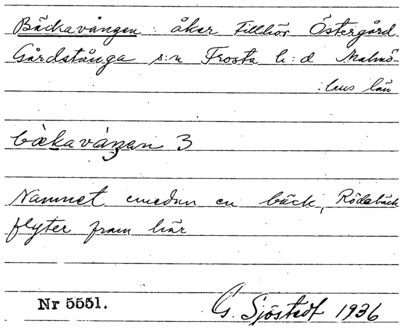 Bäckavången: åker tillhör Östergård
Gårdstånga s:n Frosta h:d Malmö-
:hus län
bækavåŋan 3
Namnet emedan en bäck, Rödabäck
flyter fram här
Nr 5551. G. Sjöstedt 1936